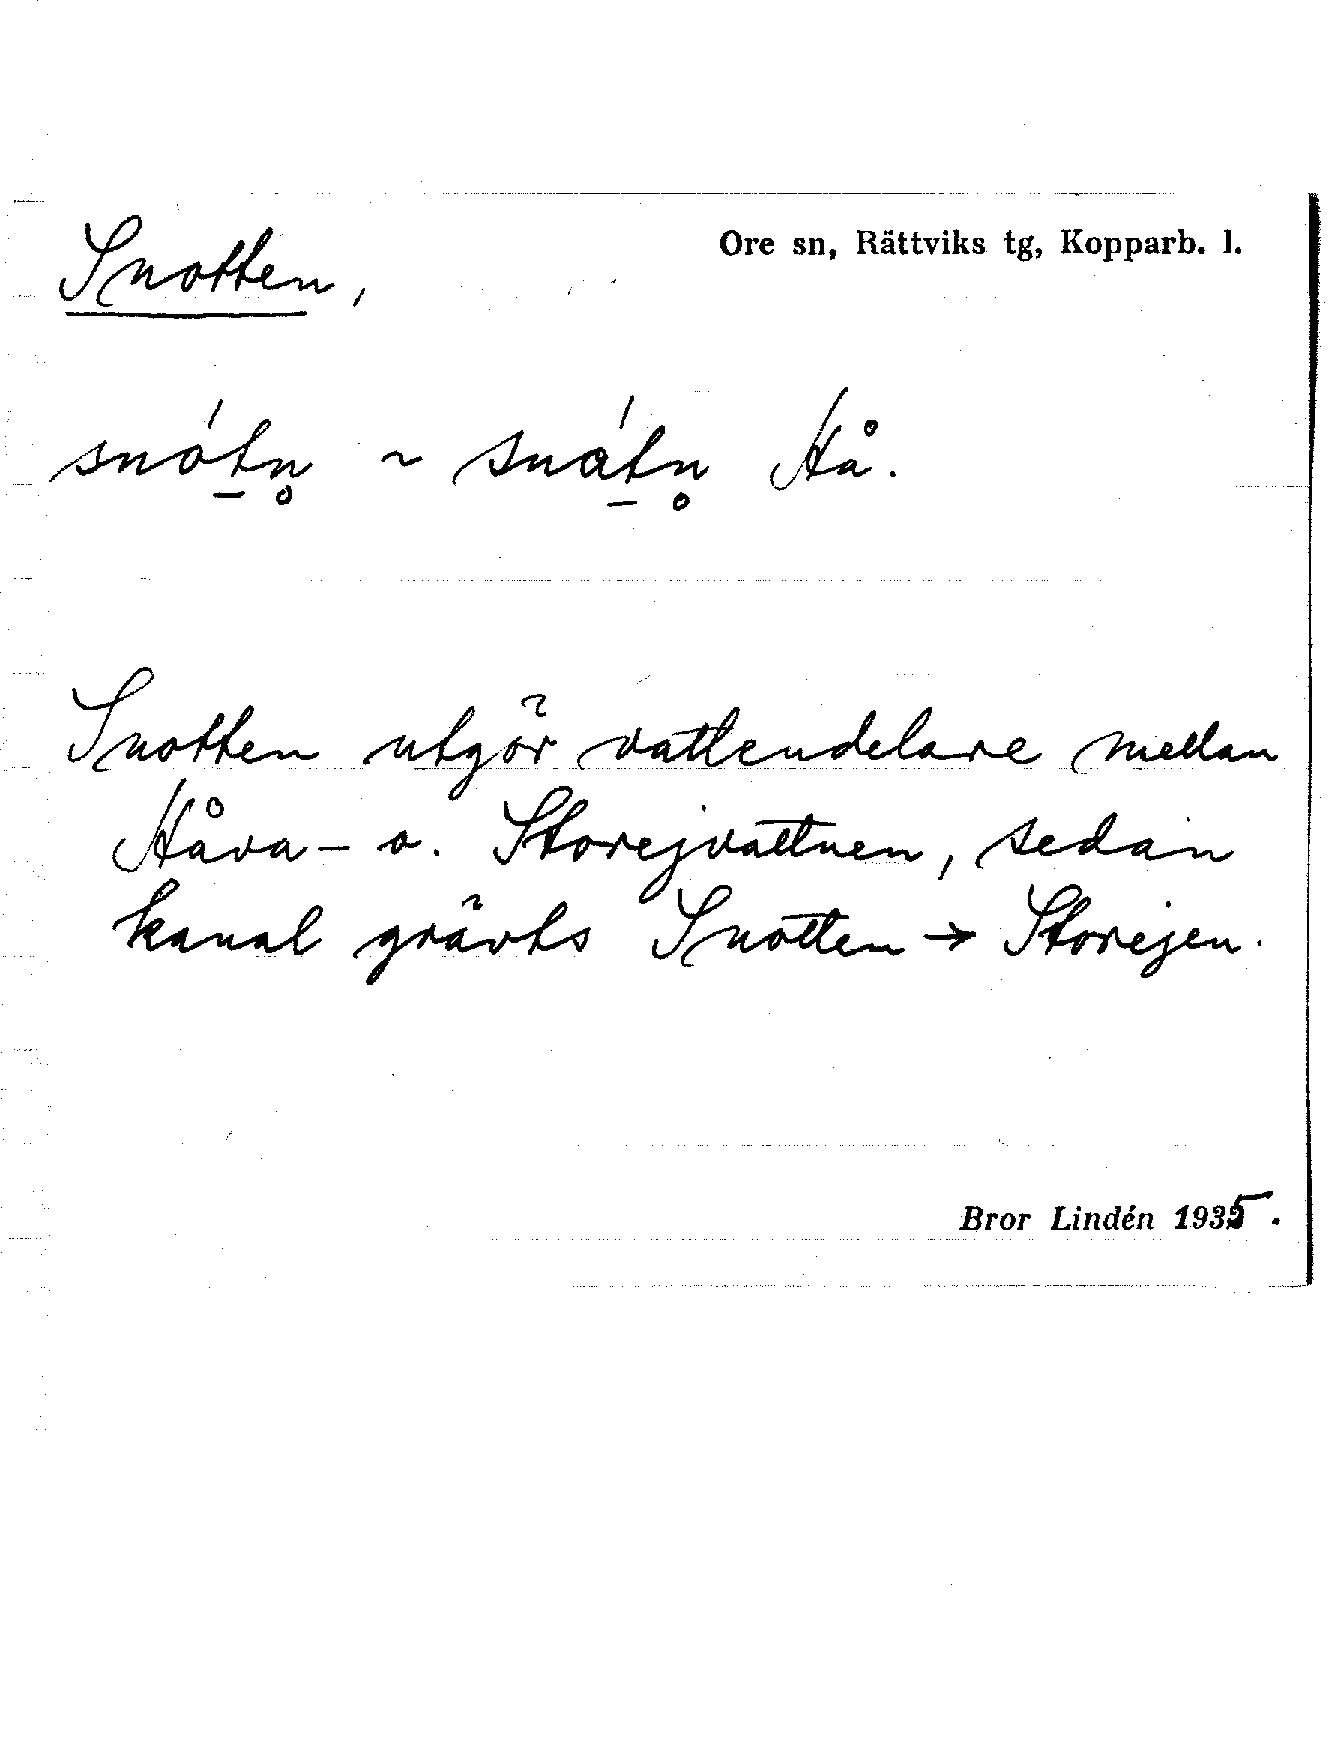 Ore sn, Rättviks tg, Kopparb. l.
Snotten,
snót̲n̥ ~ snát̲n̥ Hå.
Snotten utgör vattendelare mellan
Håva- o. Storejvattnen, sedan
kanal grävts Snotten → Storejen.
Bror Lindén 1935.